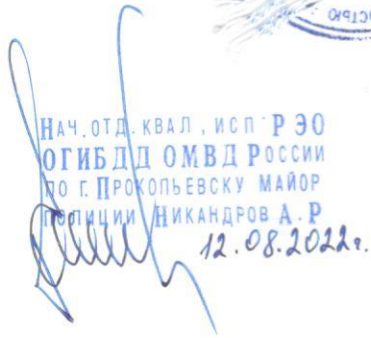 НАЧ.ОТД.КВАЛ, ИСП РЭО
ОГИБДД ОМВД РОССИИ
ПО Г. ПРОКОПЬЕВСКУ МАЙОР
ПОЛИЦИИ НИКАНДРОВ А.Р
12.08.2022г.